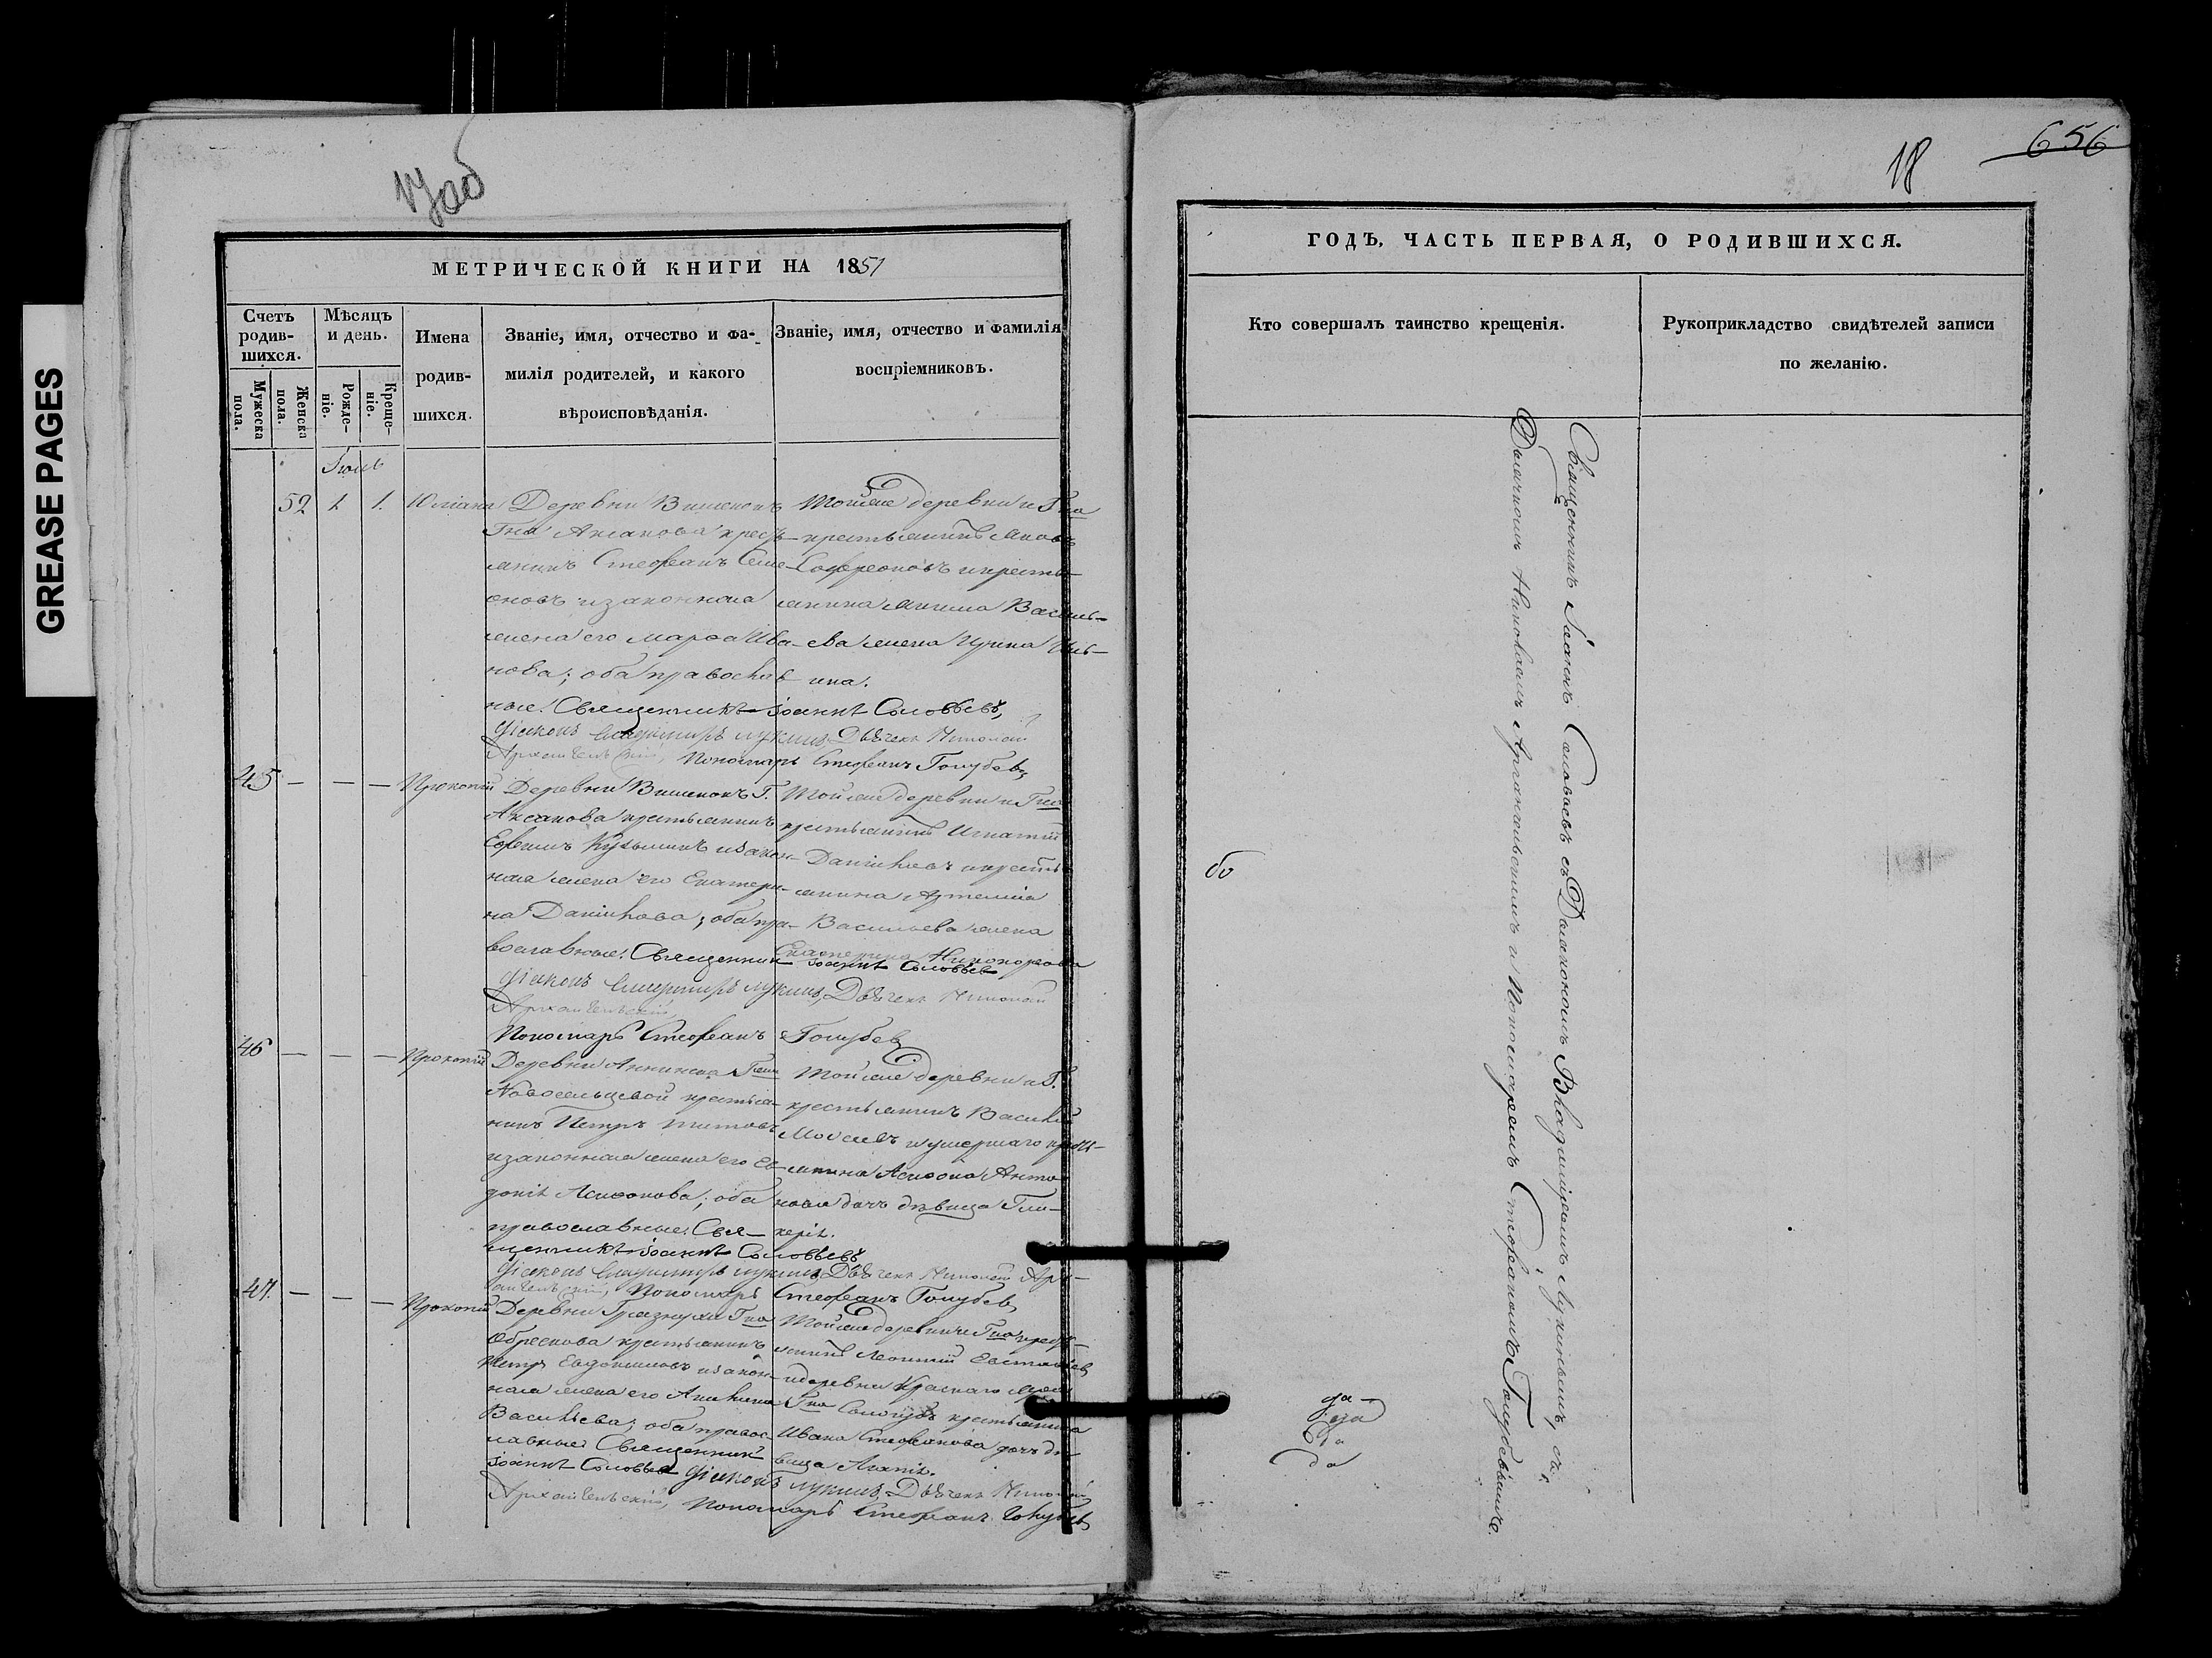 GREASE PAGES
17 об
МЕТРИЧЕСКОЙ КНИГИ НА 1851
Счетъ родив-шихся.
Мужеска пола.
Женска пола.
Мѣсяцъ и день.
Рожде-ніе.
Креще-ніе.
Имена родив-шихся.
Званіе, имя, отчество и фа-милія родителей, и какого вѣроисповѣданія.
Званіе, имя, отчество и фамилія воспріемниковъ.
Іюль
52 1 1. Юліана
Деревни Вишенокъ
Гна Аксакова кресть-
янинъ Стефанъ Семе-
оновъ и законная
жена его Марфа Ива-
нова; оба православ
ные. Священникъ Іоаннъ Соловьевъ,
Діаконъ Владимиръ Лукинъ, Дьячекъ Николай
Архангельскій, Пономарь Стефанъ Голубевъ
Той же деревни и Гна
крестьянинъ Яковъ
Софроновъ и кресть-
янина Василь-
ева жена Ирина Иль-
ина.
45 — — — Прокопій
Деревни Вишенокъ Г.
Аксакова крестьянинъ
Ефимъ Кузьминъ и закон-
ная жена его Екатери-
на Данилова; оба пра-
вославные. Священникъ Іоаннъ Соловьевъ
Діаконъ Владимиръ Лукинъ, Дьячекъ Николай
Архангельскій
Пономарь Стефанъ Голубевъ
Той же деревни и Гна
крестьянинъ Игнатій
Даниловъ и кресть
янина Артемія
Васильева жена
Екатерина Никифорова
46 — — — Прокопій
Деревни Аннина Гжи
Новосельцевой крестья-
нинъ Петръ Титовъ
и законная жена его Ев-
докія Агафонова; оба
православные. Свя-
щенникъ Іоаннъ Соловьевъ
Діаконъ Владимиръ Лукинъ, Дьячекъ Николай Арх-
ангельскій, Пономарь Стефанъ Голубевъ
Той же деревни и Г.
крестьянинъ Василій
Моисеевъ и умершаго кресть-
янина Анто
нова дочь дѣвица Гли-
керія.
47. — — — Прокопій
Деревни Грязнухи Гна
Обрескова крестьянинъ
Петръ Евдокимовъ и закон-
ная жена его Акилина
Васильева; оба право-
славные. Священникъ
Іоаннъ Соловьевъ Діаконъ Лукинъ, Дьячекъ Николай
Архангельскій, Пономарь Стефанъ Голубевъ
Той же деревни и Гна кресть-
янинъ Леонтій Евстафіев
и деревни Краснаго
Гна Сологубъ крестьянина
Ивана Стефанова дочь дѣ
вица Агапія.
656
18
ГОДЪ, ЧАСТЬ ПЕРВАЯ, О РОДИВШИХСЯ.
Кто совершалъ таинство крещенія.
Рукоприкладство свидѣтелей записи по желанію.
Священникъ Іоаннъ Соловьевъ съ Діакономъ Владиміромъ Лукинымъ, съ
Дьячкомъ Николаемъ Архангельскимъ и Пономаремъ Стефаномъ Голубевымъ.